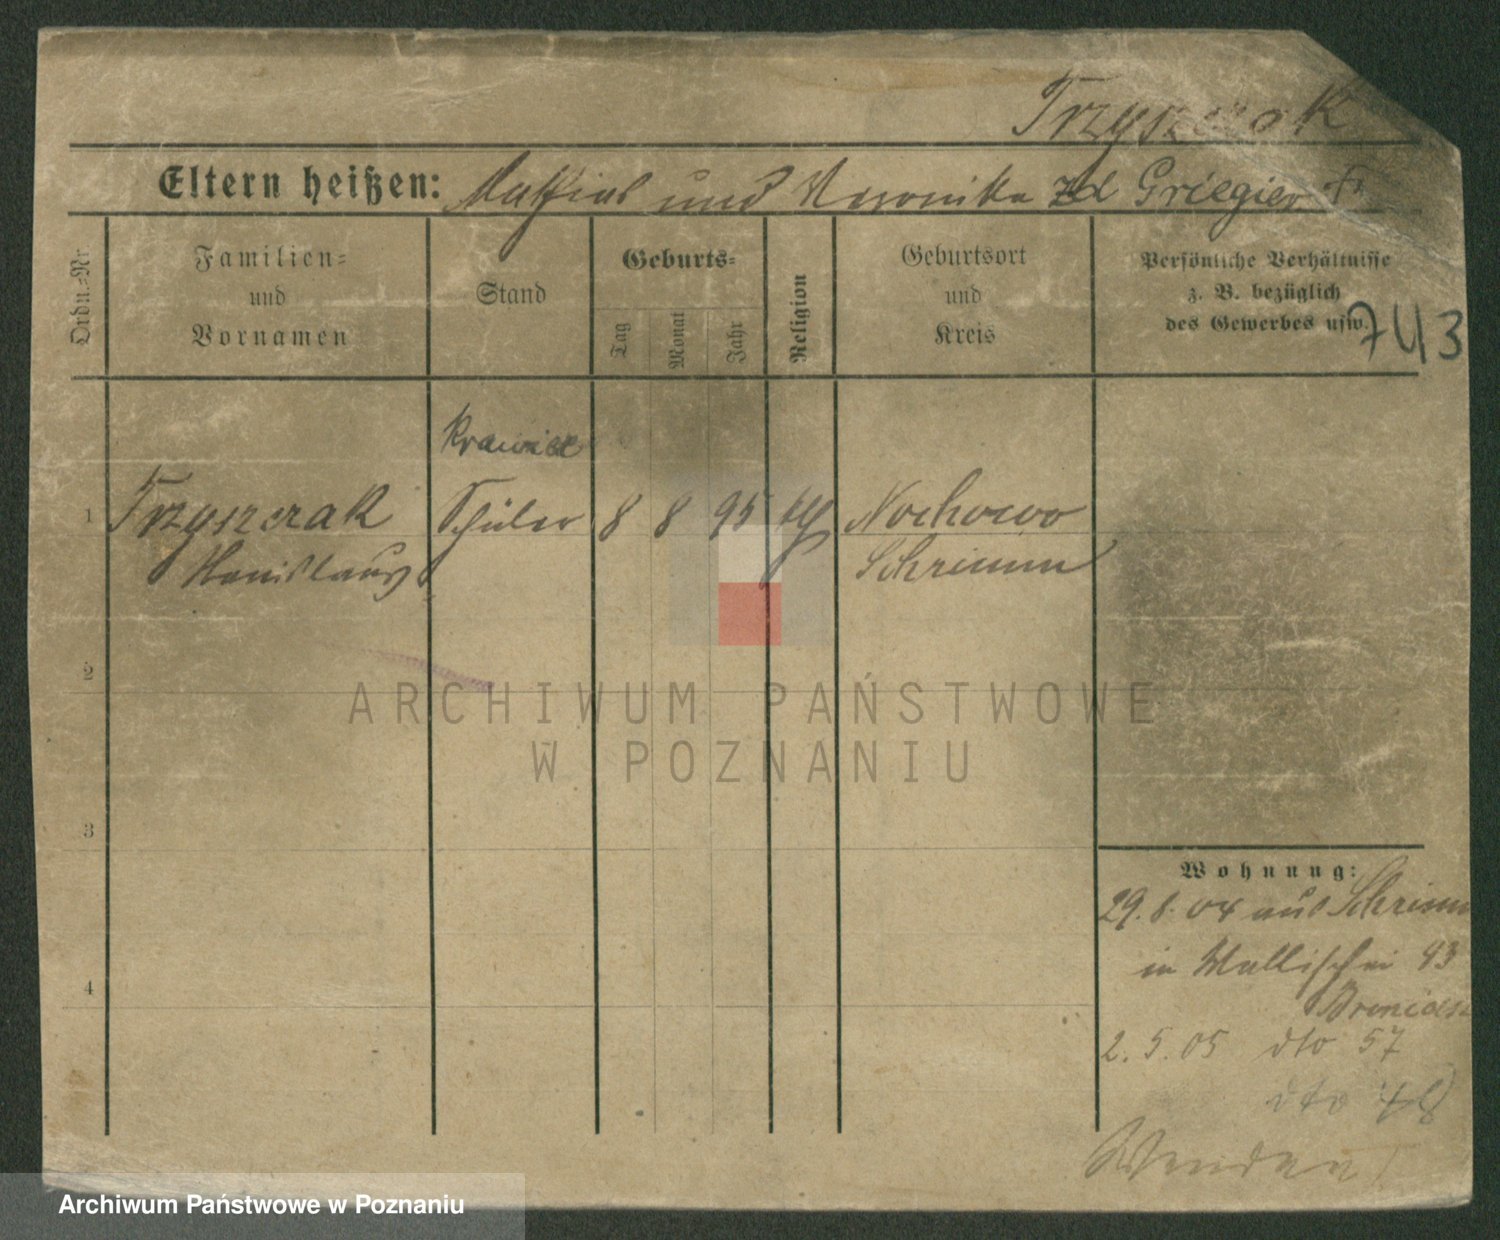 Trzyszczak
Eltern heißen: Mathias und Veronika zd Griegier
Ordn.=Nr.
Familien=
und
Vornamen
Stand
Geburts=
Tag
Monat
Jahr
Religion
Geburtsort
und
Kreis
Persönliche Verhältnisse
z. B. bezüglich
des Gewerbes usw.
743
Krawiec
1 Trzyszczak Schüler 8 8 95 Nochowo
Stanislaus Schrimm
2
ARCHIWUM PAŃSTWOWE
W POZNANIU
3
Wohnung:
29. 8. 04 aus Schrimm
in Wallischei 43
4
2. 5. 05 dto 57
dto 48
Wenden!
Archiwum Państwowe w Poznaniu